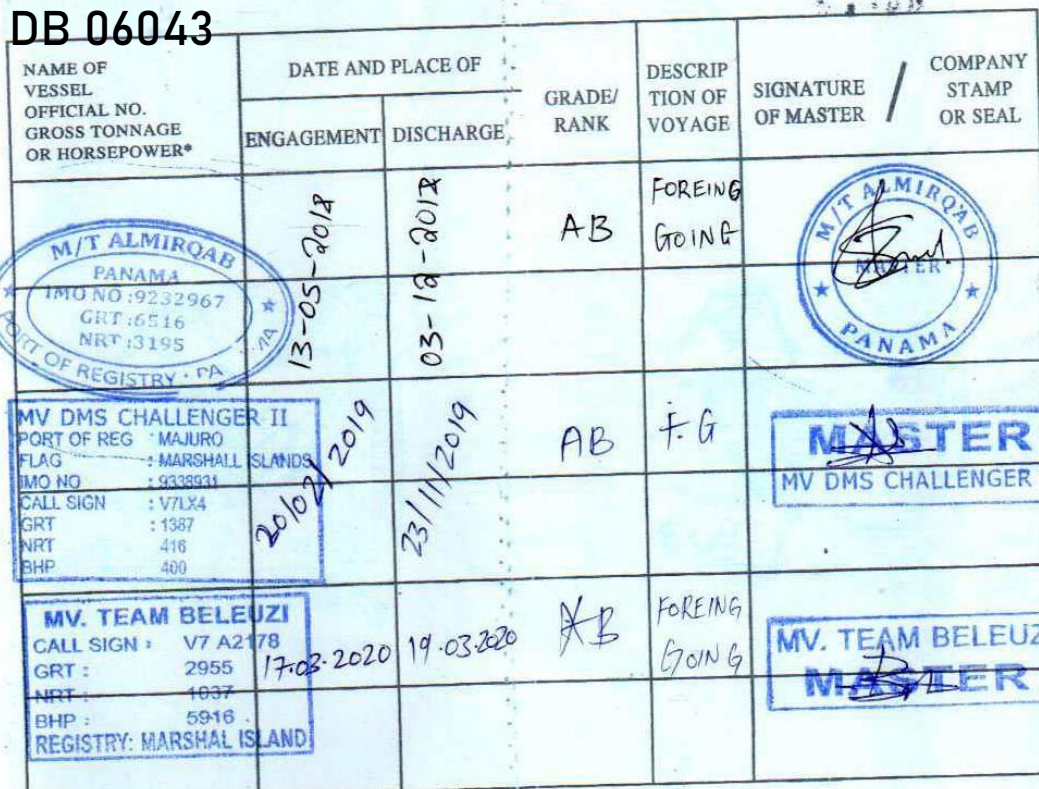 DB 06043
NAME OF
VESSEL
OFFICIAL NO.
GROSS TONNAGE
OR HORSEPOWER*
DATE AND PLACE OF
ENGAGEMENT
DISCHARGE
GRADE/
RANK
DESCRIP
TION OF
VOYAGE
SIGNATURE
OF MASTER
/
COMPANY
STAMP
OR SEAL
M/T ALMIRQAB
PANAMA
IMO NO :9232967
GRT :6516
NRT :3195
PORT OF REGISTRY · PA
13-05-2018
03-12-2018
AB
FOREING
GOING
M/T ALMIRQAB
MASTER
PANAMA
MV DMS CHALLENGER II
PORT OF REG : MAJURO
FLAG : MARSHALL ISLANDS
IMO NO : 9338931
CALL SIGN : V7LX4
GRT : 1387
NRT 416
BHP 400
20/02/2019
23/11/2019
AB
F.G
MASTER
MV DMS CHALLENGER
MV. TEAM BELEUZI
CALL SIGN : V7 A2178
GRT : 2955
NRT : 1037
BHP : 5916
REGISTRY: MARSHAL ISLAND
17.03.2020
19.03.2020
AB
FOREING
GOING
MV. TEAM BELEUZ
MASTER